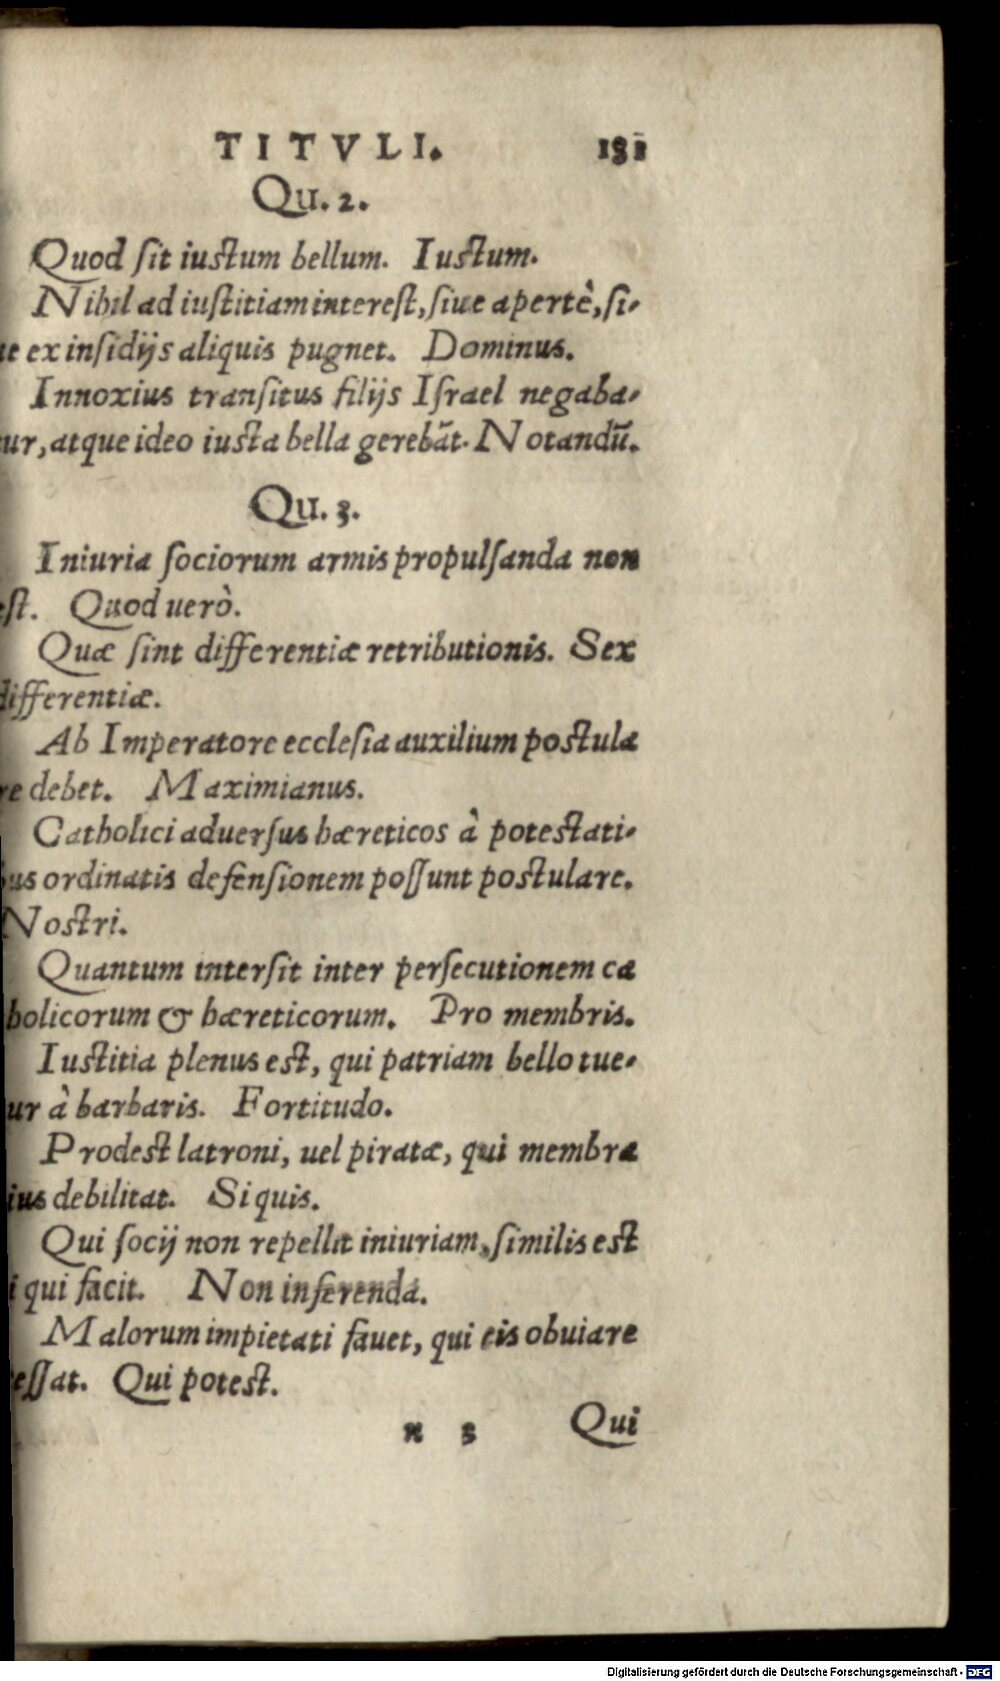 TITVLI. 181
Qu. 2.
Quod ſit iuſtum bellum. Iuſtum.
Nihil ad iuſtitiam intereſt, ſiue apertè, ſi-
ue ex inſidijs aliquis pugnet. Dominus.
Innoxius tranſitus filijs Iſrael negaba-
ur, atque ideo iuſta bella gerebãt. Notandũ.
Qu. 3.
Iniuria ſociorum armis propulſanda non
eſt. Quod uerò.
Quæ ſint differentiæ retributionis. Sex
differentiæ.
Ab Imperatore eccleſia auxilium poſtula
re debet. Maximianus.
Catholici aduerſus hæreticos à poteſtati-
bus ordinatis defenſionem poſſunt poſtulare.
Noſtri.
Quantum interſit inter perſecutionem ca
holicorum & hæreticorum. Pro membris.
Iuſtitia plenus eſt, qui patriam bello tue-
ur à barbaris. Fortitudo.
Prodeſt latroni, uel piratæ, qui membra
ius debilitat. Si quis.
Qui ſocij non repellit iniuriam, ſimilis eſt
i qui facit. Non inferenda.
Malorum impietati fauet, qui eis obuiare
eſſat. Qui poteſt.
n 3 Qui
Digitalisierung gefördert durch die Deutsche Forschungsgemeinschaft - DFG